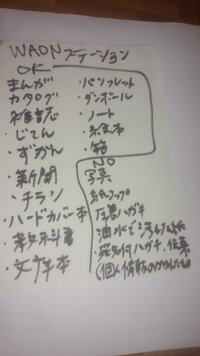 WAONステーション
OK
まんが
カタログ
雑誌
・じてん
・ずかん
・新聞
・チラシ
・ハードカバー本
・教科書
・文庫本
・パンフレット
・ダンボール
・ノート
・紙袋
・箱
NO
写真
紙コップ
圧着ハガキ
油水で汚れた紙
・宛名付ハガキ、伝票
(個人情報の